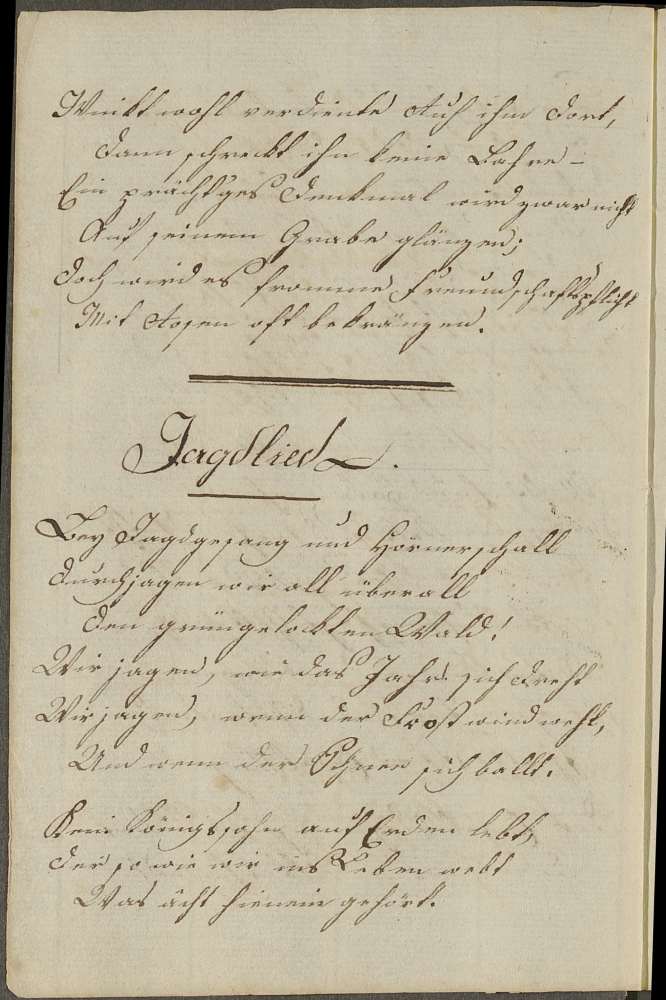 Winkt wohl verdiente Ruh ihm dort,
Dann schreckt ihn keine Bahre –
Ein prächt'ges Denkmal wird zwar nicht
Auf seinem Grabe glänzen;
Doch wird es fromme Freundschaftspflicht
Mit Rosen oft bekränzen.
Jagdlied.
Bey Jagdgesang und Hörnerschall
Durchjagen wir all überall
Den grüngelockten Wald!
Wir jagen, wie das Jahr sich dreht
Wir jagen, wenn der Frostwind weht,
Und wenn der Schnee sich ballt.
Kein Königssohn auf Erden lebt,
Der so wie wir ins Leben webt
Was ächt hienein gehört.